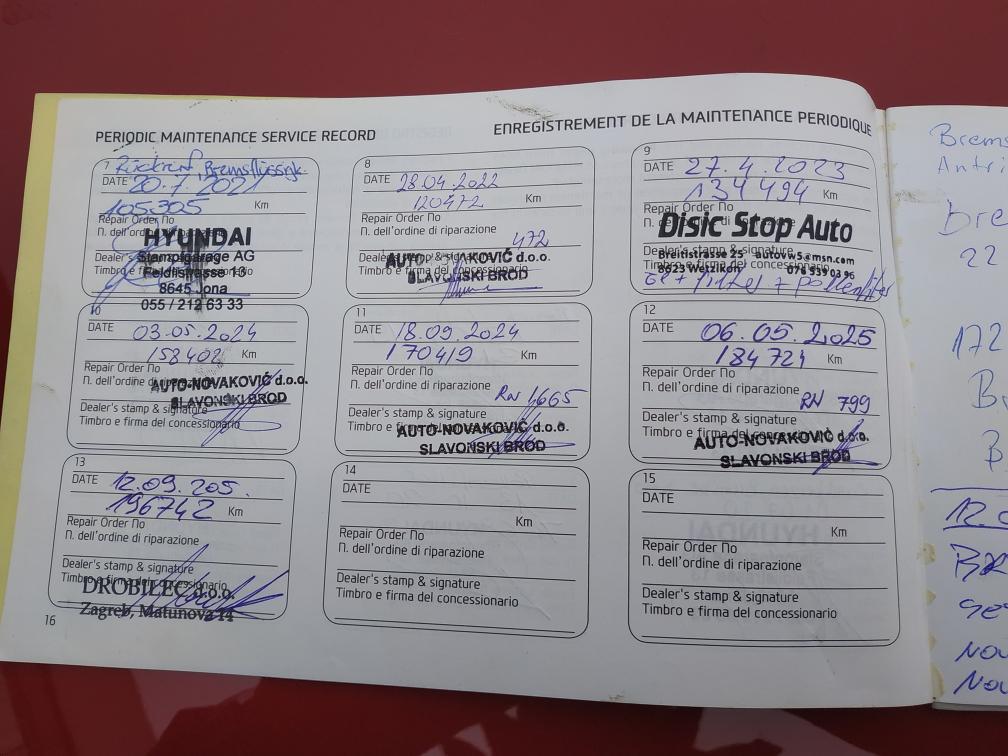 PERIODIC MAINTENANCE SERVICE RECORD
ENREGISTREMENT DE LA MAINTENANCE PERIODIQUE
7
Rückruf, Bremsflüssigk.
DATE 20.7.2021
105305 Km
Repair Order No
N. dell'ordine di riparazione
HYUNDAI
Stampfgarage AG
Feldlistrasse 13
8645 Jona
055 / 212 63 33
8
DATE 28.04.2022
120472 Km
Repair Order No
N. dell'ordine di riparazione
472
Dealer's stamp & signature
Timbro e firma del concessionario
AUTO-NOVAKOVIĆ d.o.o.
SLAVONSKI BROD
9
DATE 27.4.2023
134494 Km
Repair Order No
N. dell'ordine di riparazione
Disic Stop Auto
Dealer's stamp & signature
Timbro e firma del concessionario
Breitistrasse 25 autovw5@msn.com
8623 Wetzikon 076 539 03 96
oel + filter + pollenfilter
10
DATE 03.05.2024
158402 Km
Repair Order No
N. dell'ordine di riparazione
AUTO-NOVAKOVIĆ d.o.o.
SLAVONSKI BROD
Dealer's stamp & signature
Timbro e firma del concessionario
11
DATE 18.09.2024
170419 Km
Repair Order No
N. dell'ordine di riparazione
RN 4665
Dealer's stamp & signature
Timbro e firma del concessionario
AUTO-NOVAKOVIĆ d.o.o.
SLAVONSKI BROD
12
DATE 06.05.2025
184721 Km
Repair Order No
N. dell'ordine di riparazione
RN 799
Dealer's stamp & signature
Timbro e firma del concessionario
AUTO-NOVAKOVIĆ d.o.o.
SLAVONSKI BROD
13
DATE 12.09.205.
196742 Km
Repair Order No
N. dell'ordine di riparazione
Dealer's stamp & signature
Timbro e firma del concessionario
DROBILEC d.o.o.
Zagreb, Matunova 14
14
DATE
Km
Repair Order No
N. dell'ordine di riparazione
Dealer's stamp & signature
Timbro e firma del concessionario
15
DATE
Km
Repair Order No
N. dell'ordine di riparazione
Dealer's stamp & signature
Timbro e firma del concessionario
16
Brems
Antri
Bre
22
172
B
12.
Nov
Nov